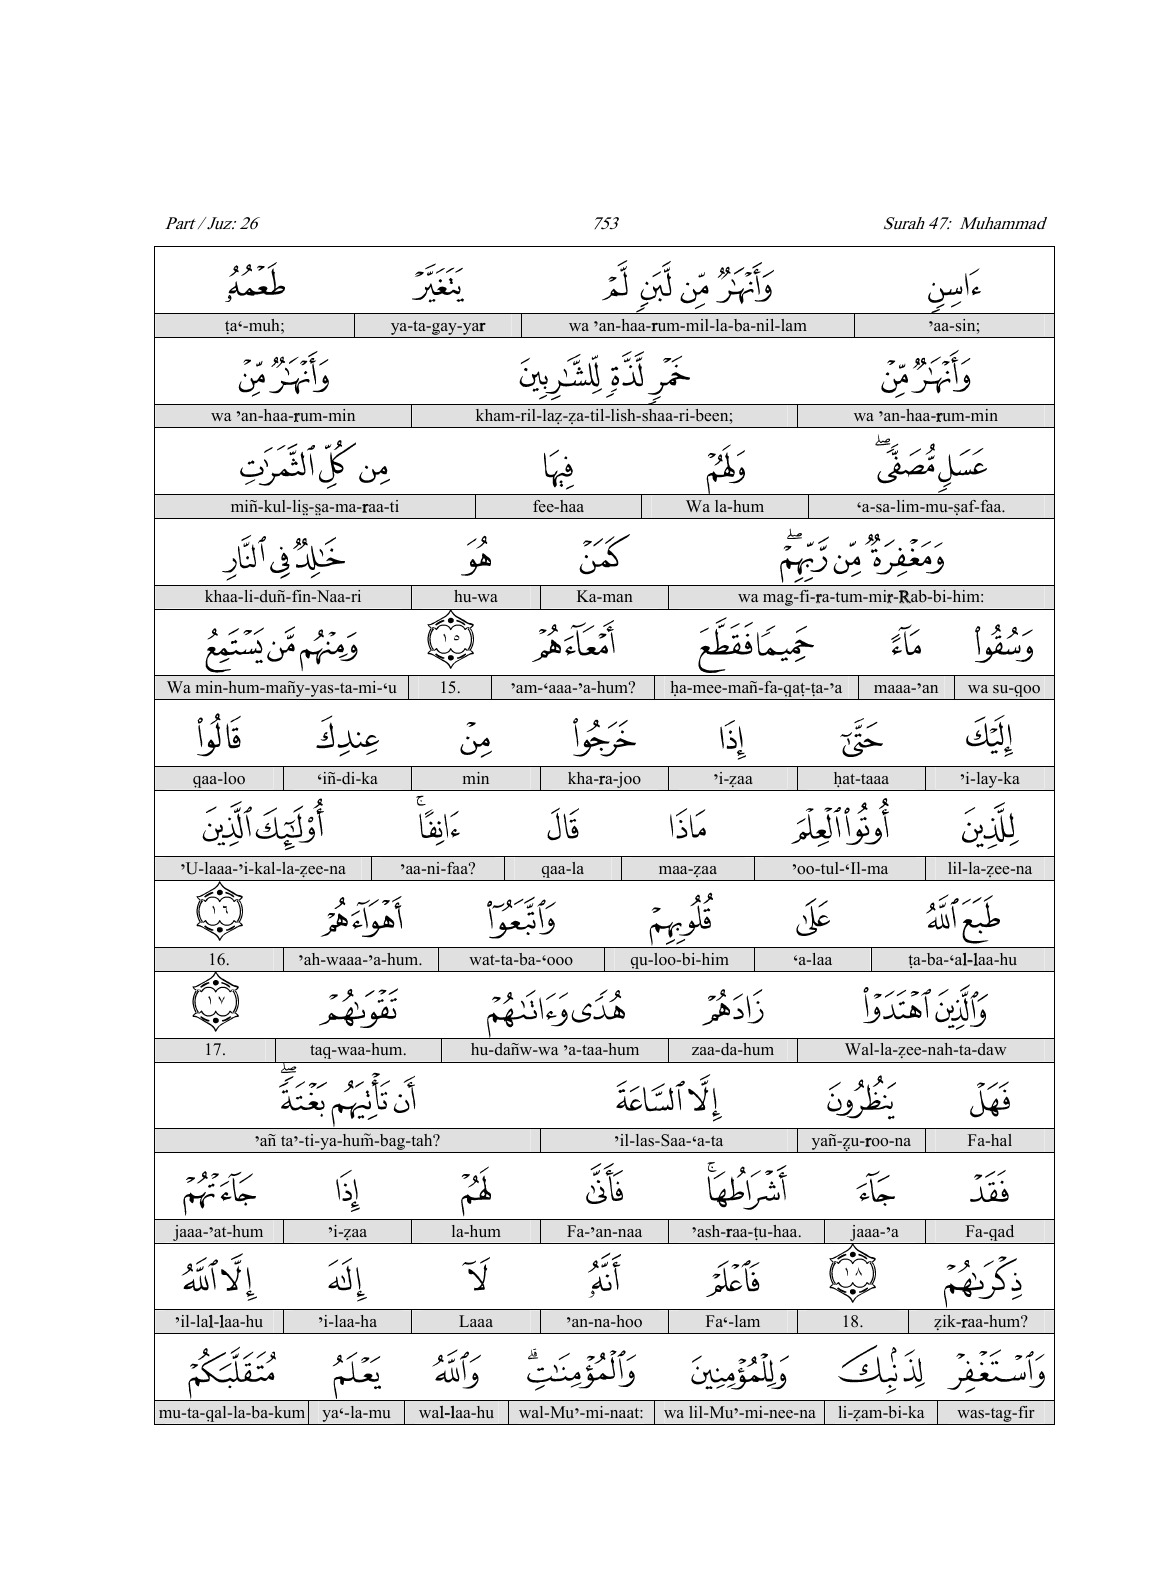 Part / Juz: 26 753 Surah 47: Muhammad
ءَاسِنٍ وَأَنْهَٰرٌ مِّن لَّبَنٍ لَّمْ يَتَغَيَّرْ طَعْمُهُۥ
’aa-sin; wa ’an-haa-rum-mil-la-ba-nil-lam ya-ta-gay-yar ṭa‘-muh;
وَأَنْهَٰرٌ مِّنْ خَمْرٍ لَّذَّةٍ لِّلشَّٰرِبِينَ وَأَنْهَٰرٌ مِّنْ
wa ’an-haa-rum-min kham-ril-laẓ-ẓa-til-lish-shaa-ri-been; wa ’an-haa-rum-min
عَسَلٍ مُّصَفًّى ۖ وَلَهُمْ فِيهَا مِن كُلِّ ٱلثَّمَرَٰتِ
‘a-sa-lim-mu-ṣaf-faa. Wa la-hum fee-haa miñ-kul-lis̤-s̤a-ma-raa-ti
وَمَغْفِرَةٌ مِّن رَّبِّهِمْ ۖ كَمَنْ هُوَ خَٰلِدٌ فِى ٱلنَّارِ
wa mag-fi-ra-tum-mir-Rab-bi-him: Ka-man hu-wa khaa-li-duñ-fin-Naa-ri
وَسُقُوا۟ مَآءً حَمِيمًا فَقَطَّعَ أَمْعَآءَهُمْ ١٥ وَمِنْهُم مَّن يَسْتَمِعُ
wa su-qoo maaa-’an ḥa-mee-mañ-fa-qaṭ-ṭa-’a ’am-‘aaa-’a-hum? 15. Wa min-hum-mañy-yas-ta-mi-‘u
إِلَيْكَ حَتَّىٰٓ إِذَا خَرَجُوا۟ مِنْ عِندِكَ قَالُوا۟
’i-lay-ka ḥat-taaa ’i-ẓaa kha-ra-joo min ‘iñ-di-ka qaa-loo
لِلَّذِينَ أُوتُوا۟ ٱلْعِلْمَ مَاذَا قَالَ ءَانِفًا ۚ أُو۟لَٰٓئِكَ ٱلَّذِينَ
lil-la-ẓee-na ’oo-tul-‘Il-ma maa-ẓaa qaa-la ’aa-ni-faa? ’U-laaa-’i-kal-la-ẓee-na
طَبَعَ ٱللَّهُ عَلَىٰ قُلُوبِهِمْ وَٱتَّبَعُوٓا۟ أَهْوَآءَهُمْ ١٦
ṭa-ba-‘al-laa-hu ‘a-laa qu-loo-bi-him wat-ta-ba-‘ooo ’ah-waaa-’a-hum. 16.
وَٱلَّذِينَ ٱهْتَدَوْا۟ زَادَهُمْ هُدًى وَءَاتَىٰهُمْ تَقْوَىٰهُمْ ١٧
Wal-la-ẓee-nah-ta-daw zaa-da-hum hu-dañw-wa ’a-taa-hum taq-waa-hum. 17.
فَهَلْ يَنظُرُونَ إِلَّا ٱلسَّاعَةَ أَن تَأْتِيَهُم بَغْتَةً ۖ
Fa-hal yañ-ẓu-roo-na ’il-las-Saa-‘a-ta ’añ ta’-ti-ya-hum̃-bag-tah?
فَقَدْ جَآءَ أَشْرَاطُهَا ۚ فَأَنَّىٰ لَهُمْ إِذَا جَآءَتْهُمْ
Fa-qad jaaa-’a ’ash-raa-ṭu-haa. Fa-’an-naa la-hum ’i-ẓaa jaaa-’at-hum
ذِكْرَىٰهُمْ ١٨ فَٱعْلَمْ أَنَّهُۥ لَآ إِلَٰهَ إِلَّا ٱللَّهُ
ẓik-raa-hum? 18. Fa‘-lam ’an-na-hoo Laaa ’i-laa-ha ’il-lal-laa-hu
وَٱسْتَغْفِرْ لِذَنۢبِكَ وَلِلْمُؤْمِنِينَ وَٱلْمُؤْمِنَٰتِ ۗ وَٱللَّهُ يَعْلَمُ مُتَقَلَّبَكُمْ
was-tag-fir li-ẓam-bi-ka wa lil-Mu’-mi-nee-na wal-Mu’-mi-naat: wal-laa-hu ya‘-la-mu mu-ta-qal-la-ba-kum